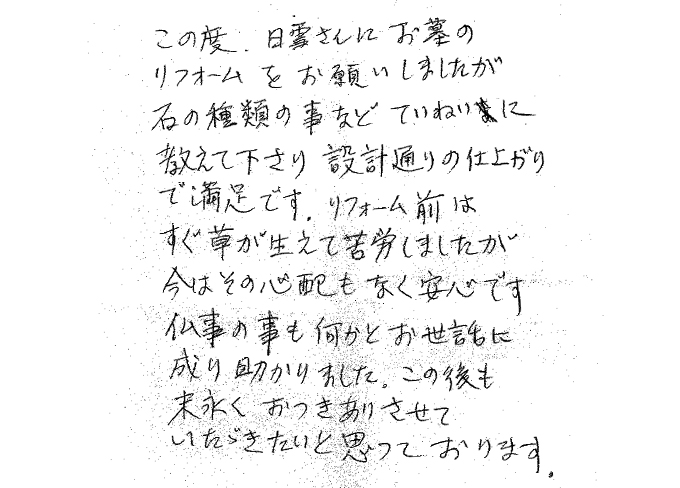 この度、日雲さんに お墓の
リフォームを お願いしましたが
石の種類の事など ていねいに
教えて下さり 設計通りの仕上がり
で満足です。リフォーム前は
すぐ草が生えて苦労しましたが
今はその心配もなく安心です
仏事の事も何かとお世話に
成り助かりました。この後も
末永く おつきありさせて
いただきたいと思っております。